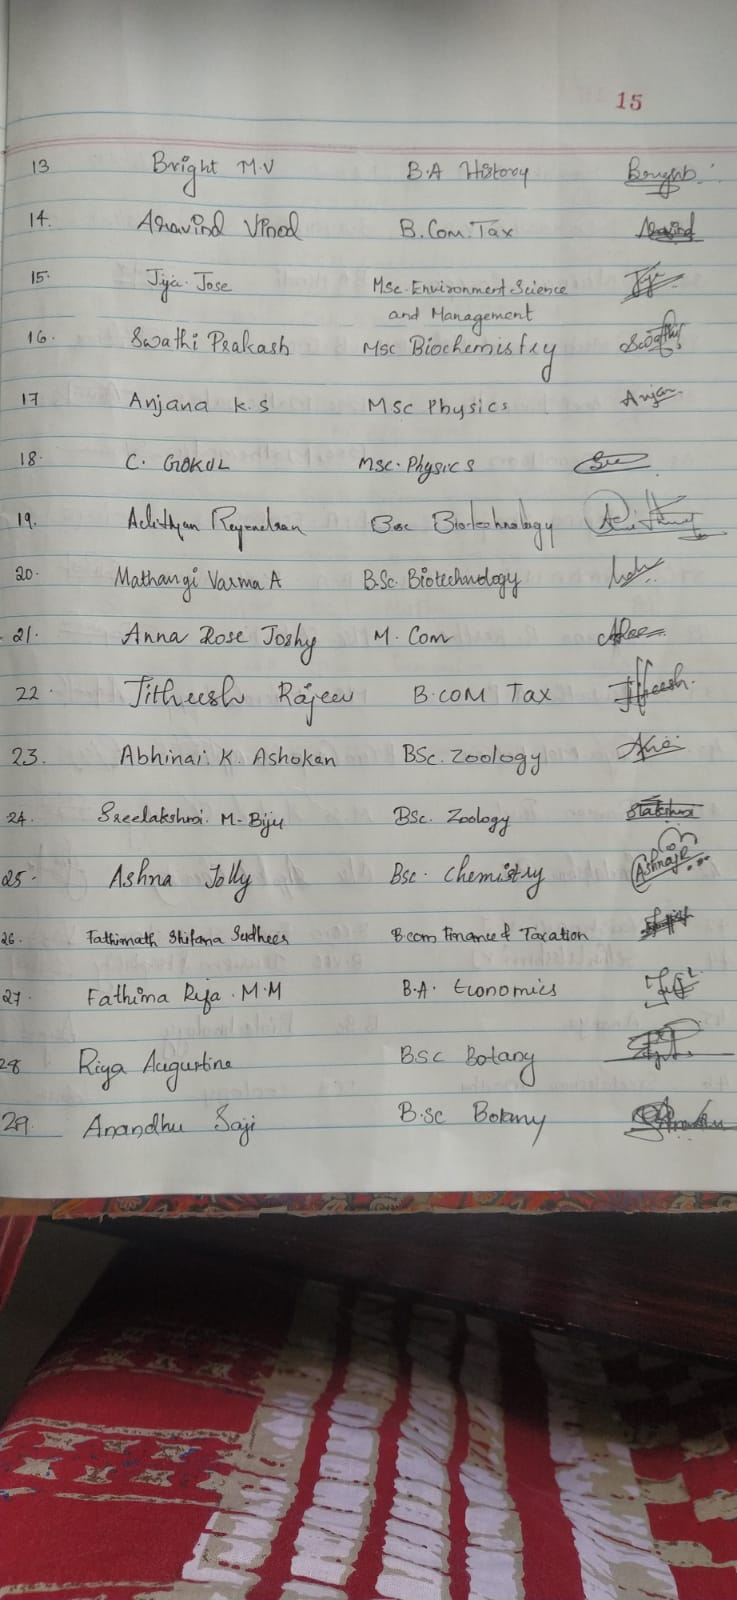 15
13 Bright M.V B.A History
14. Aravind Vinod B.Com. Tax Aravind
15. Jija Jose Msc. Environment Science
and Management
16. Swathi Prakash Msc Biochemistry Swathy
17 Anjana K.S Msc Physics Anjan
18. C. GOKUL Msc. Physics
19. Adithyan Bsc Biotechnology
20. Mathangi Varma A B.Sc. Biotechnology
21. Anna Rose Joshy M. Com
22. Jitheesh Rajeev B.COM Tax Jitheesh.
23. Abhinai. K. Ashokan BSc. Zoology
24. Sreelakshmi. M. Biju BSc. Zoology
25. Ashna Jolly Bsc. Chemistry
26. Fathimath Shifana Sudheer Bcom Finance & Taxation
27. Fathima Rifa. M.M B.A. Economics
28 Riya Augustine BSC Botany
29. Anandhu Saji B.Sc Botany